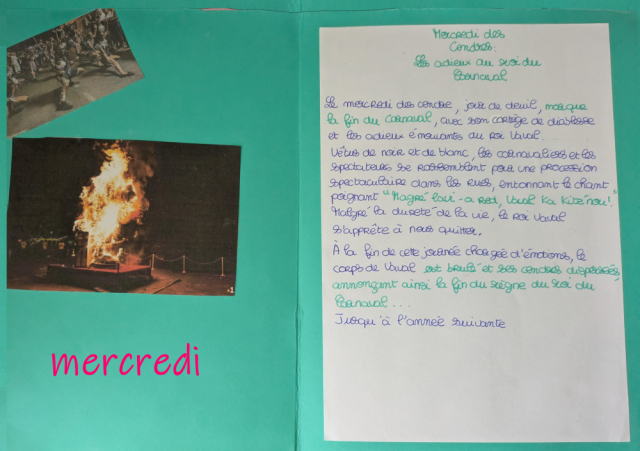 mercredi
Mercredi des
Cendres:
Les adieux au roi du
Carnaval
Le mercredi des cendre, jour de deuil, marque
la fin du Carnaval, avec son cortège de diablesse
et les adieux émouvants au roi Vaval.
Vêtus de noir et de blanc, les carnavaliers et les
spectateurs se rassemblent pour une procession
spectaculaire dans les rues, entonnant le chant
poignant "Magré lavi-a red, Vaval Ka Kité nou!"
Malgré la dureté de la vie, le roi Vaval
s'apprête à nous quitter.
À la fin de cette journée chargée d'émotions, le
corps de Vaval est brulé et ses cendres dispersées,
annonçant ainsi la fin du règne du roi du
Carnaval...
Jusqu'à l'année suivante